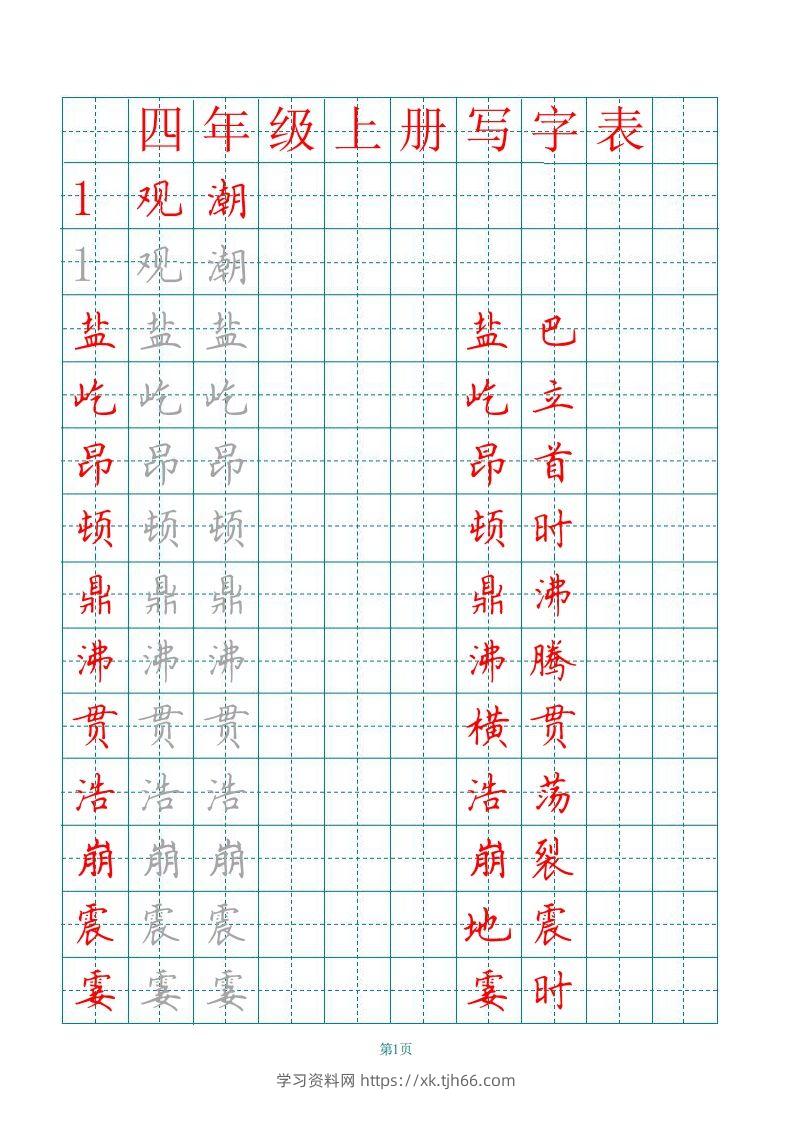 四年级上册写字表
1 观 潮
1 观 潮
盐 盐 盐 盐 巴
屹 屹 屹 屹 立
昂 昂 昂 昂 首
顿 顿 顿 顿 时
鼎 鼎 鼎 鼎 沸
沸 沸 沸 沸 腾
贯 贯 贯 横 贯
浩 浩 浩 浩 荡
崩 崩 崩 崩 裂
震 震 震 地 震
霎 霎 霎 霎 时
第1页
学习资料网 https://xk.tjh66.com